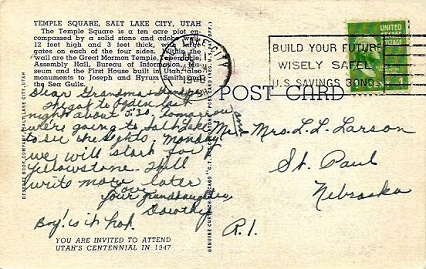 TEMPLE SQUARE, SALT LAKE CITY, UTAH
The Temple Square is a ten acre plot en-
compassed by a solid stone and adobe wall
12 feet high and 3 feet thick, with large
gates on each of the four sides. Within the
wall are the Great Mormon Temple, Tabernacle,
Assembly Hall, Bureau of Information, Mu-
seum and the First House built in Utah, also
monuments to Joseph and Hyrum Smith and
the Sea Gulls.
Dear Grandma &
I got to Ogden last
night about 5:30, tomorrow
we're going to Salt Lake
to see the sights. Monday
we will start for
Yellowstone. Will
write more later
Love
your granddaughter,
Dorothy
Boy! is it hot.
YOU ARE INVITED TO ATTEND
UTAH'S CENTENNIAL IN 1947
DESERET BOOK COMPANY, SALT LAKE CITY, UTAH
BUILD YOUR FUTURE
WISELY SAFELY
U.S. SAVINGS BONDS
UNITED
POST CARD
Mr + Mrs. L. L. Larson
St. Paul
Nebraska
R.1.